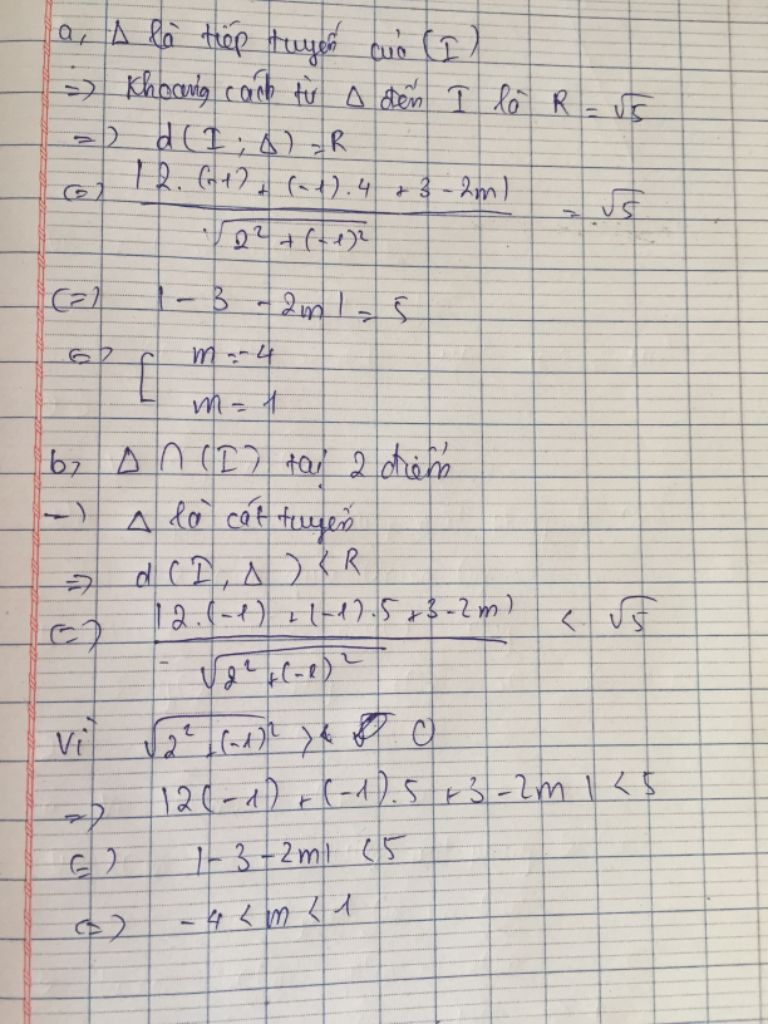 a, Δ là tiếp tuyến của (I)
=> Khoảng cách từ Δ đến I là R = √5
=> d(I; Δ) = R
<=> |2.(-1) + (-1).4 + 3 - 2m| / √(2² + (-1)²) = √5
<=> |-3 - 2m| = 5
<=> [ m = -4
m = 1
b, Δ ∩ (I) tại 2 điểm
-) Δ là cát tuyến
=> d(I, Δ) < R
<=> |2.(-1) + (-1).5 + 3 - 2m| / √(2² + (-1)²) < √5
Vì √(2² + (-1)²) > 0
=> |2(-1) + (-1).5 + 3 - 2m| < 5
<=> |-3 - 2m| < 5
<=> -4 < m < 1